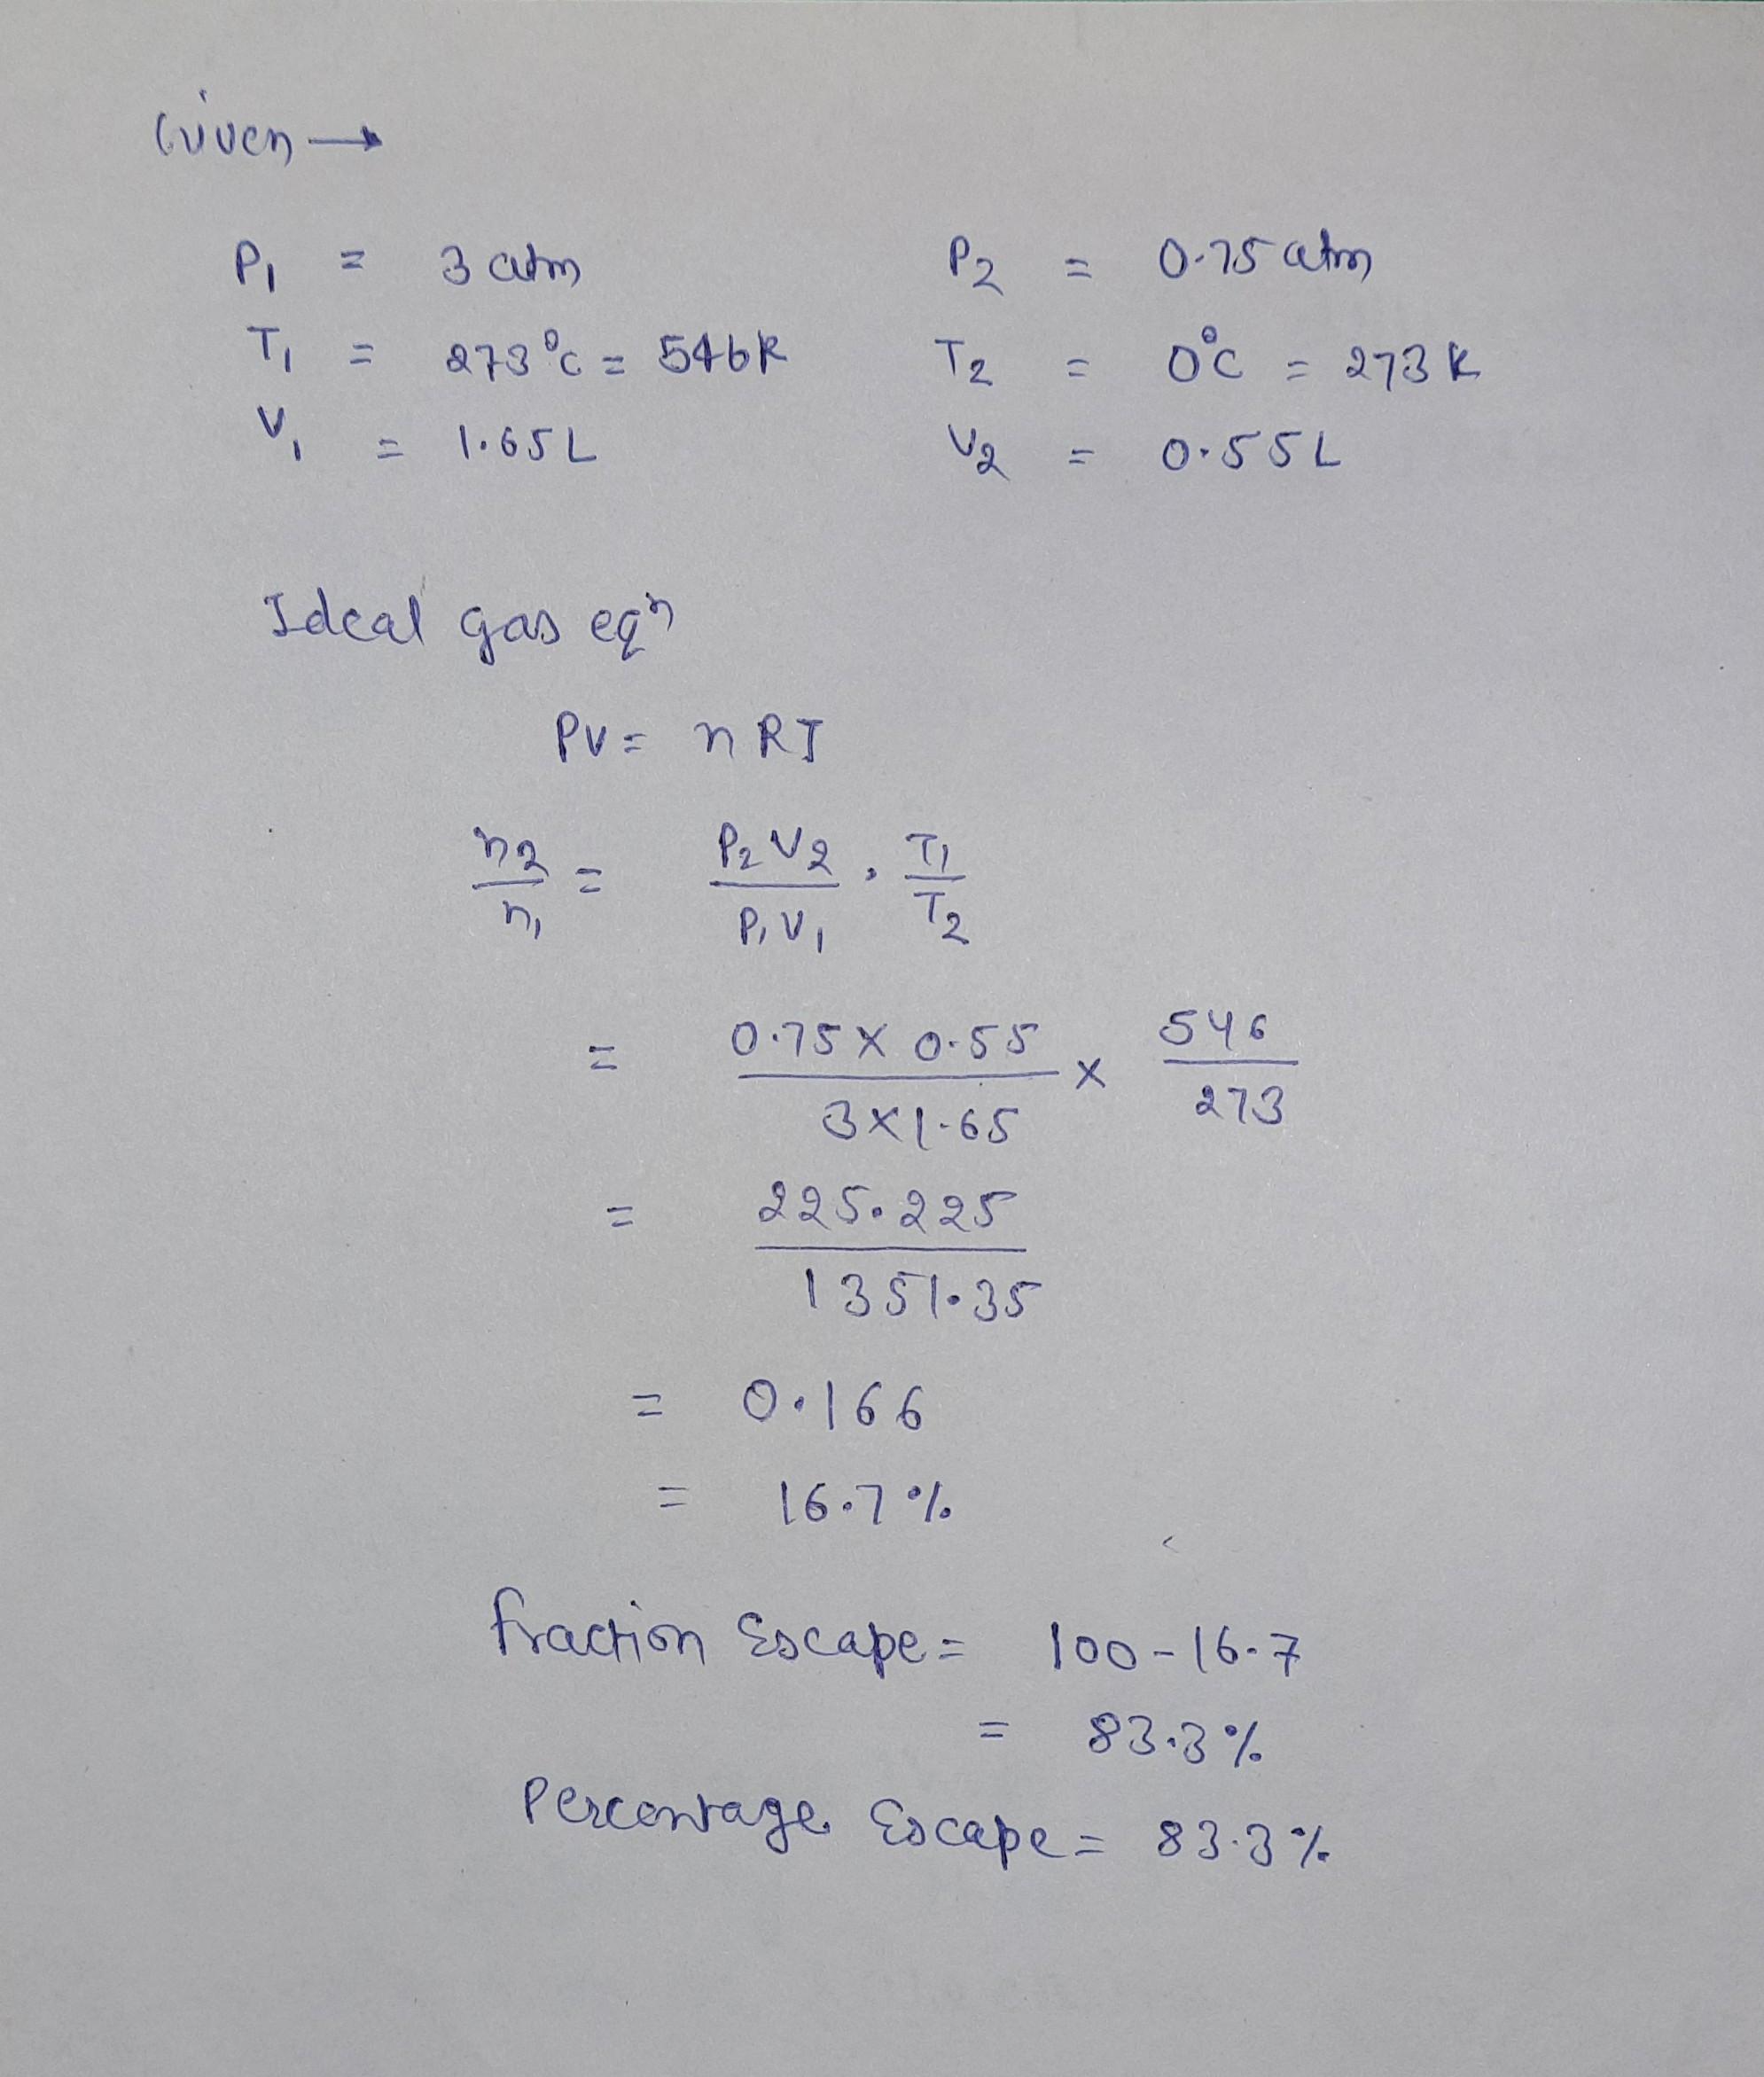 Given →
P₁ = 3 atm P₂ = 0.75 atm
T₁ = 273°C = 546K T₂ = 0°C = 273 K
V₁ = 1.65L V₂ = 0.55L
Ideal gas eqⁿ
PV = nRT
n₂/n₁ = P₂V₂/P₁V₁ · T₁/T₂
= 0.75 × 0.55/3×1.65 × 546/273
= 225.225/1351.35
= 0.166
= 16.7 %
fraction Escape = 100 - 16.7
= 83.3 %
Percentage Escape = 83.3 %